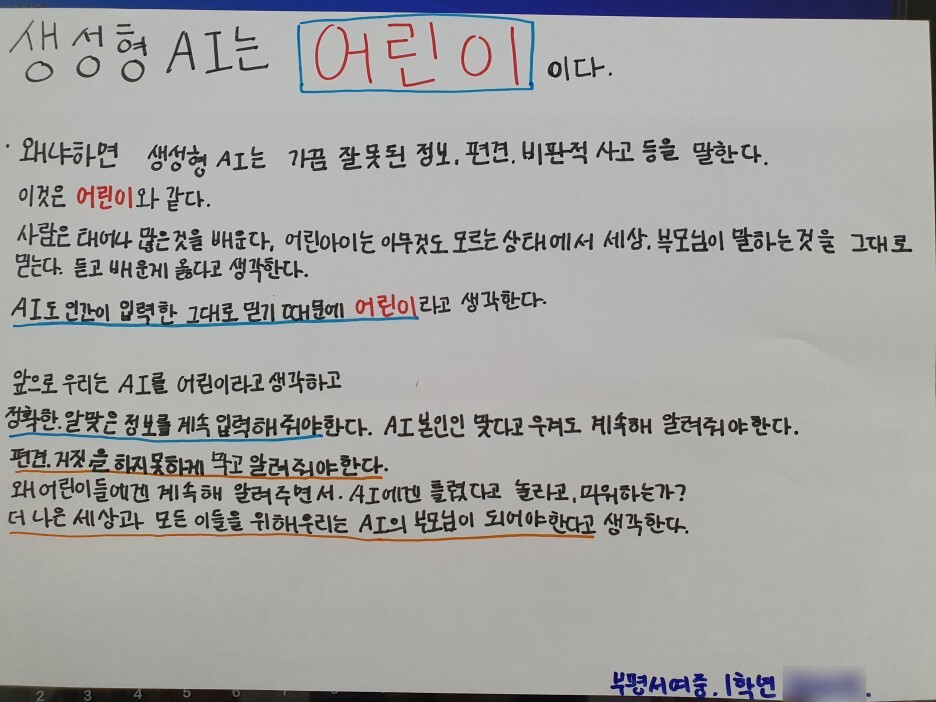 생성형 AI는 어린이 이다.
· 왜냐하면 생성형 AI는 가끔 잘못된 정보, 편견, 비판적 사고 등을 말한다.
이것은 어린이와 같다.
사람은 태어나 많은것을 배운다, 어린아이는 아무것도 모르는 상태에서 세상, 부모님이 말하는것을 그대로
믿는다. 듣고 배운게 옳다고 생각한다.
AI도 인간이 입력한 그대로 믿기 때문에 어린이라고 생각한다.
앞으로 우리는 AI를 어린이라고 생각하고
정확한. 알맞은 정보를 계속 입력해줘야한다. AI본인인 맞다고 우겨도 계속해 알려줘야한다.
편견. 거짓을 하지못하게 막고 알려줘야한다.
왜 어린이들에겐 계속해 알려주면서. AI에겐 틀렸다고 놀라고, 미워하는가?
더 나은 세상과 모든 이들을 위해우리는 AI의 부모님이 되어야한다고 생각한다.
부평서여중. 1학년
2 3 4 5 6 7 8